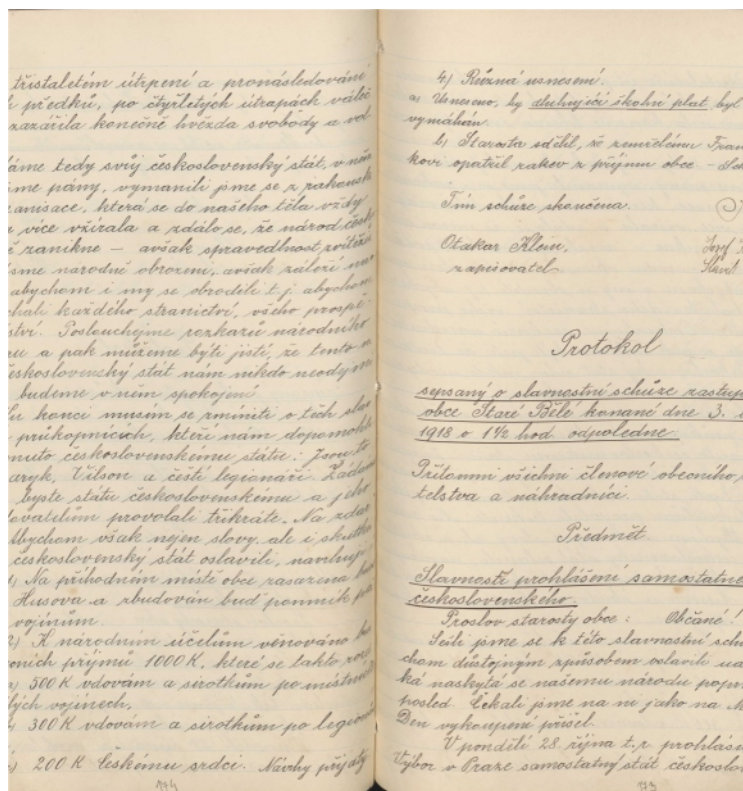 třistaletém útrpení a pronásledování
předků, po čtyřletých útrapách váleč
zazářila konečně hvězda svobody a vol
áme tedy svůj československý stát, v něm
sme pány, vymanili jsme se z rakousk
anisace, která se do našeho těla vždy
více vžírala a zdálo se, že národ česk
ě zanikne – avšak spravedlnost zvítězi
sme národně obrozeni, avšak záleží na
abychom i my se obrodili t. j. abychom
chali každého stranictví, všeho prospě
ství. Poslouchejme rozkazů národního
ru a pak můžeme býti jisti, že tento
československý stát nám nikdo neodejme
budeme v něm spokojeni
Ku konci musím se zmíniti o těch slav
průkopnících, kteří nám dopomohli
muto československému státu: Jsou to
aryk, Vilson a čeští legionáři. Žádám
byste státu československému a jeho
ovatelům provolali třikráte „Na zdar
Abychom však nejen slovy ale i skutk
československý stát oslavili, navrhuji
1) Na příhodném místě obce zasazena bu
Husova a zbudován buď pomník pa
vojínům.
2) K národním účelům věnováno bu
ních příjmů 1000 K, které se takto roz
) 500 K vdovám a sirotkům po místní
lých vojínech,
) 300 K vdovám a sirotkům po legioná
) 200 K Českému srdci. Návrhy přijaty
174
4) Různá usnesení.
a) Usneseno, by dlužnující školní plat byl
vymáhán.
b) Starosta sdělil, že zemřelému Fran
kovi opatřil rakev z příjmu obce – Sch
Tím schůze skončena.
Otakar Klein,
zapisovatel
Josef
Protokol
sepsaný o slavnostní schůze zastup
obce Staré Bělé konané dne 3.
1918 o 1½ hod. odpoledne.
Přítomni všichni členové obecního
telstva a náhradníci.
Předmět.
Slavnostní prohlášení samostatné
československého.
Proslov starosty obce: Občané!
Sešli jsme se k této slavnostní schů
chom důstojným způsobem oslavili ud
ká naskytá se našemu národu popr
posled. Čekali jsme na ni jako na M
Den vykoupení přišel.
V pondělí 28. října t. r. prohlási
Výbor v Praze samostatný stát českoslov
173